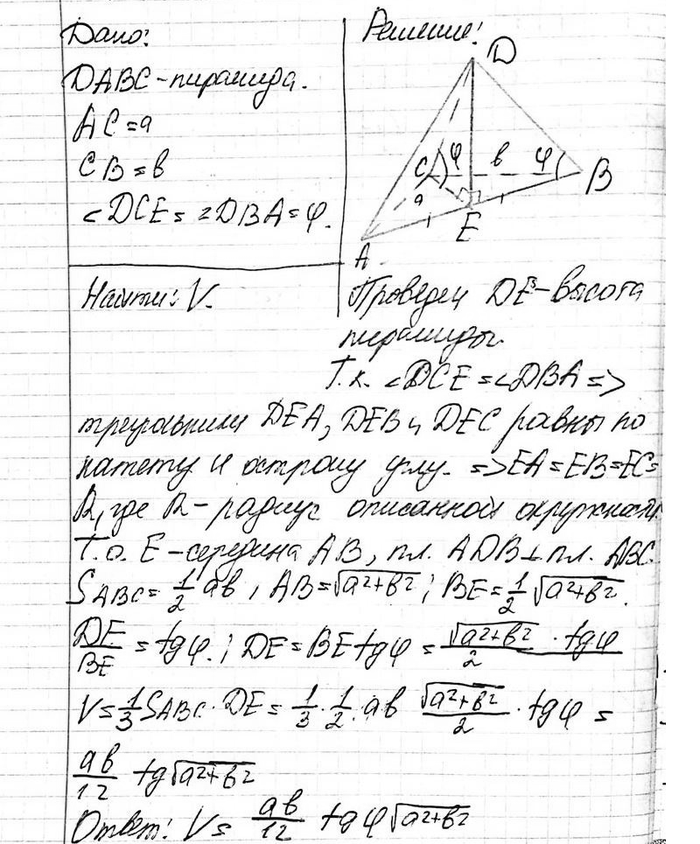 Дано:
DABC - пирамида.
AC = a
CB = b
∠DCE = ∠DBA = φ.
Найти: V.
Решение:
D
C φ b φ B
a
E
A
Проведем DE - высота
пирамиды.
Т.к. ∠DCE = ∠DBA =>
треугольники DEA, DEB и DEC равны по
катету и острому углу. => EA = EB = EC =
R, где R - радиус описанной окружности
Т.о. E - середина AB, пл. ADB ⊥ пл. ABC.
S ABC = 1/2 ab, AB = √(a²+b²); BE = 1/2 √(a²+b²).
DE/BE = tgφ.; DE = BE tgφ = √(a²+b²)/2 · tgφ
V = 1/3 S ABC · DE = 1/3 · 1/2 · ab √(a²+b²)/2 · tgφ =
ab/12 tg√(a²+b²)
Ответ: V = ab/12 tgφ√(a²+b²)